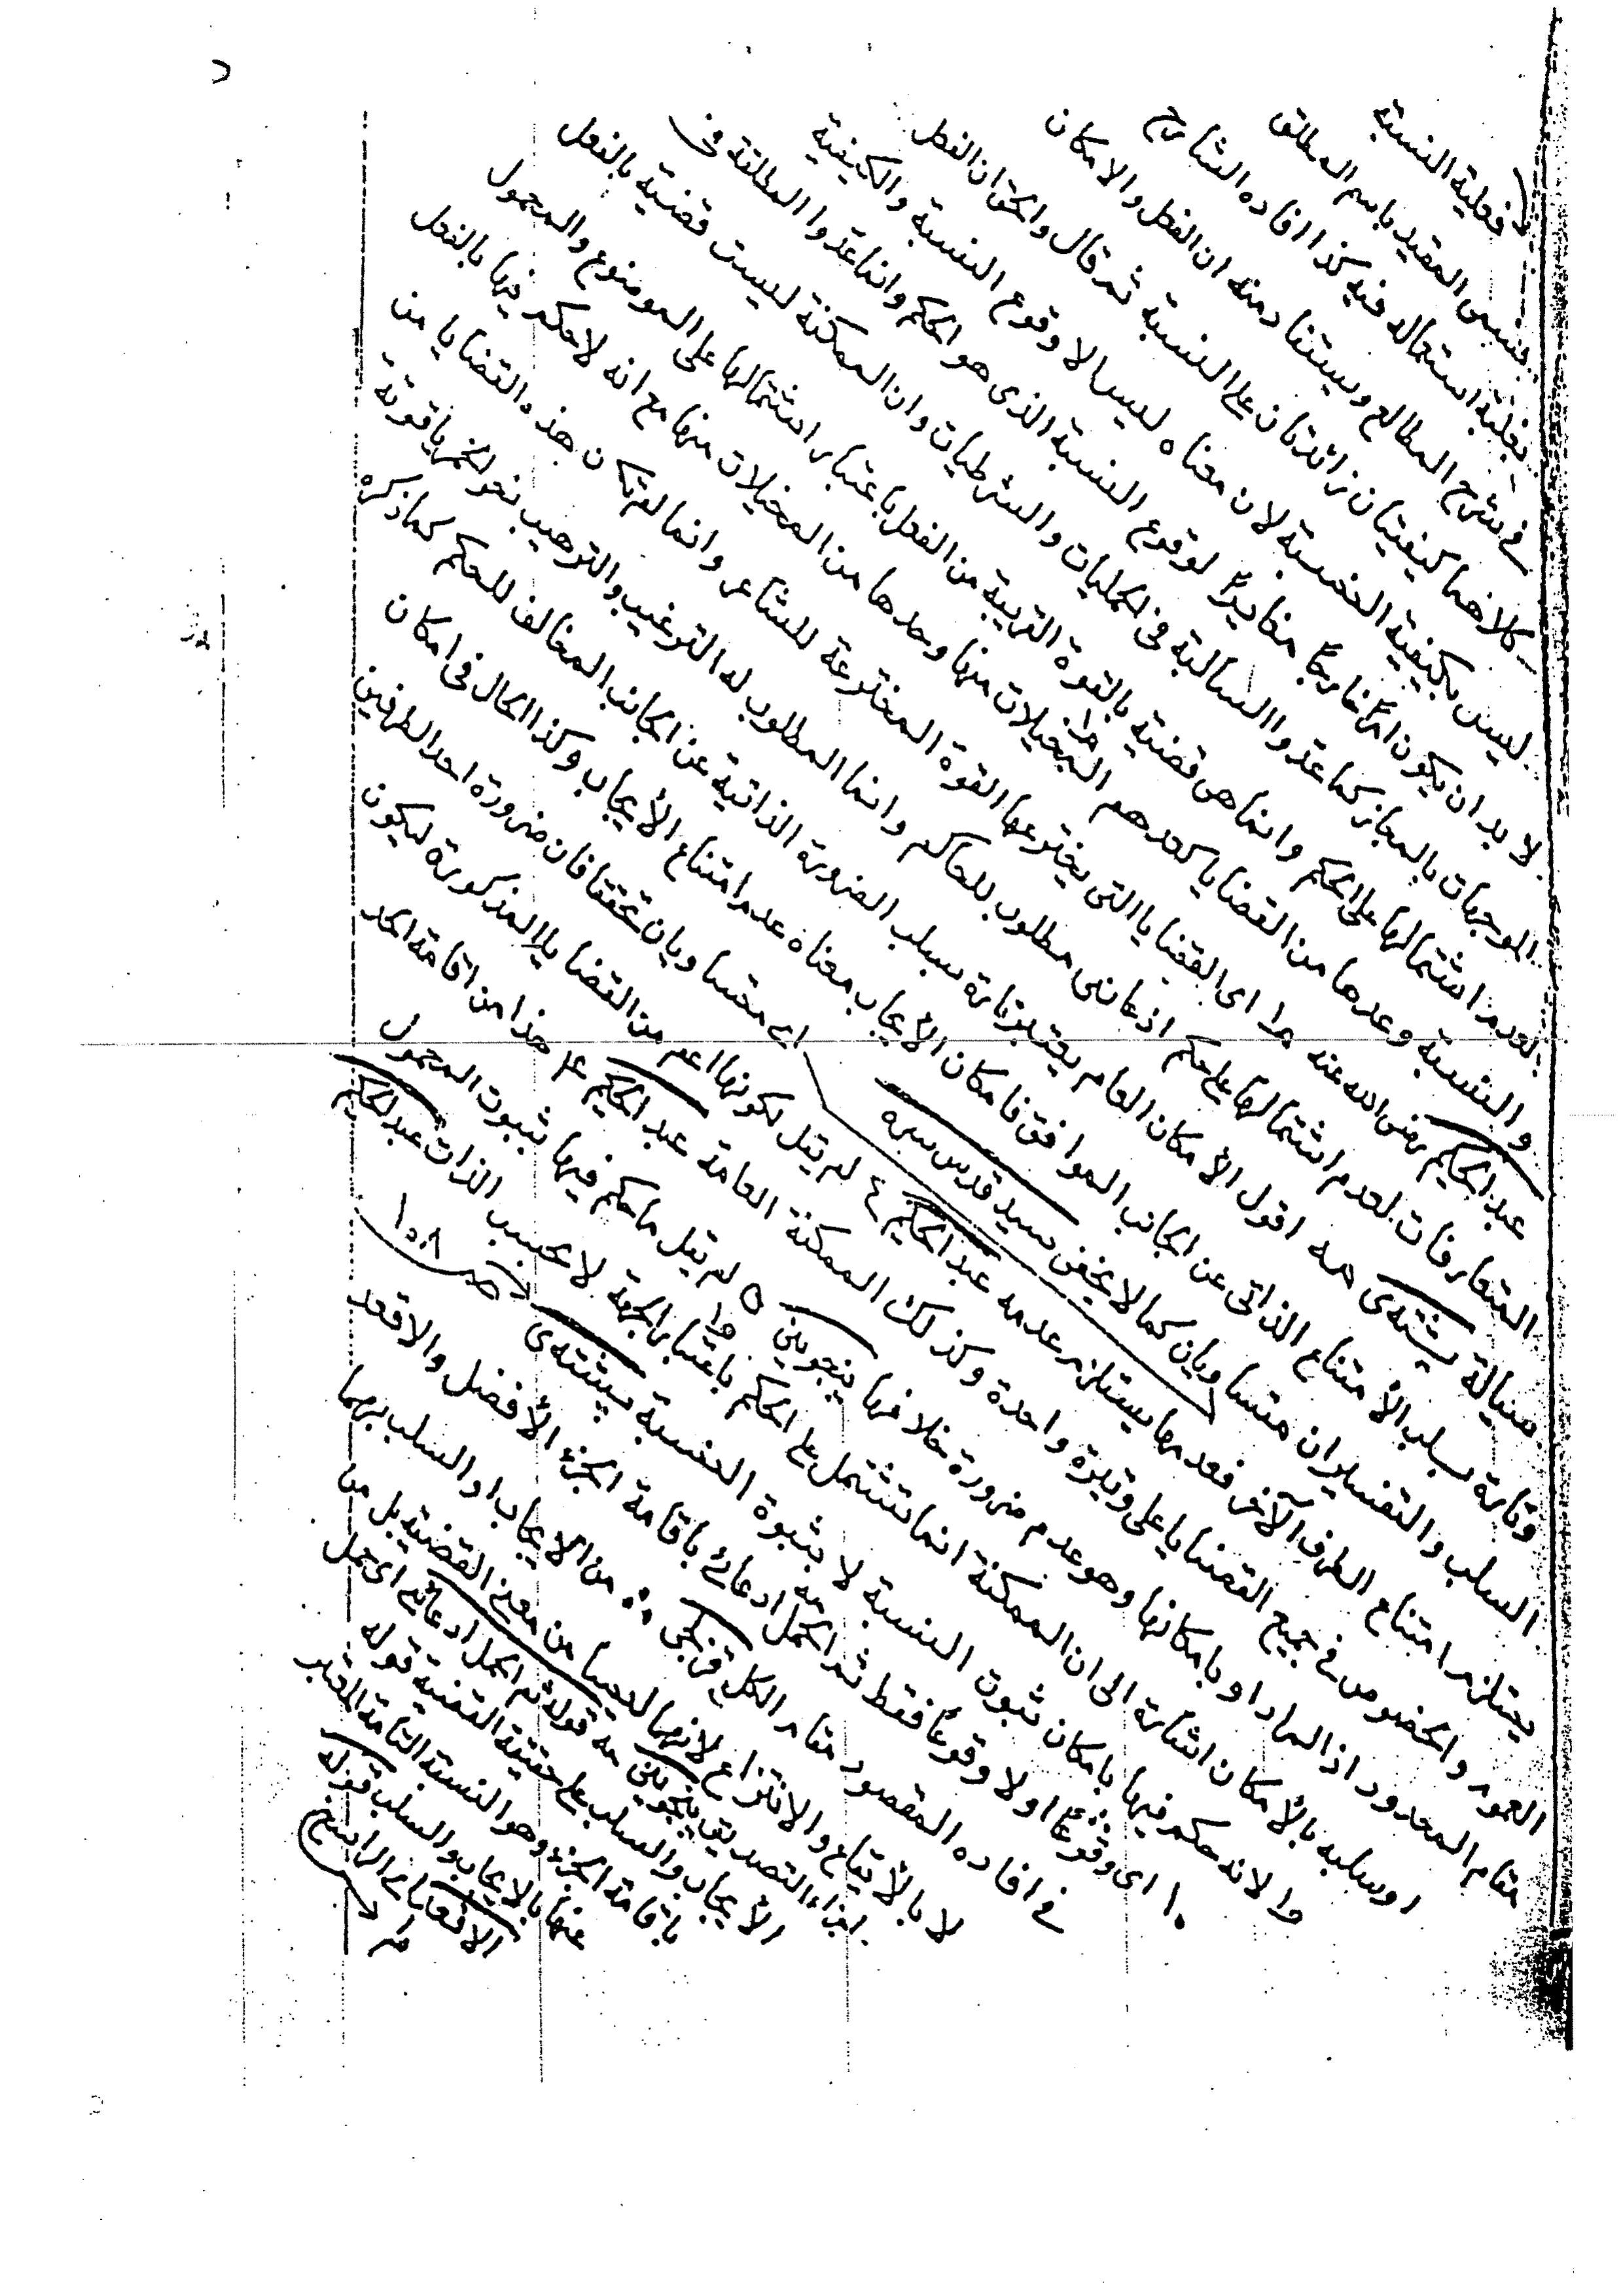 فعلية النسبة
فيسمى المقيد باسم المطلق
بغلبة استعماله فيه كذا افاده الشارح
في شرح المطالع ويستفاد منه ان الفعل والامكان
كلاهما كيفيتان زائدتان على النسبة ثم قال والحق ان الفعل
ليس بكيفية النسبة لان معناه ليس الا وقوع النسبة والكيفية
لا بد ان يكون امرًا خارجًا مغايرًا لوقوع النسبة الذى هو الحكم وانما عدوا المطلقة فى
الموجهات بالمجاز كما عدوا السالبة فى الحمليات والشرطيات وان الممكنة ليست قضية بالفعل
لعدم اشتمالها على الحكم وانما هى قضية بالقوة القريبة من الفعل باعتبار اشتمالها على الموضوع والمحمول
والنسبة وعدها من القضايا كعدهم المخيلات منها وعدها من المخيلات منها مع انه لا حكم فيها بالفعل
عبد الحكيم رضى الله عنه اى القضايا التى يخترعها القوة المخترعة للشاعر وانما لم تكن هذه القضايا من
المتعارفات لعدم اشتمالها على حكم اذعانى مطلوب للحاكم وانما المطلوب له الترغيب والترهيب نحو الخمر ياقوتة
سيالة بيشتدى اقول الأمكان العام يعتبر تارة بسلب الضرورة الذاتية عن الجانب المخالف للحكم كما ذكره
وتارة بسلب الأمتناع الذاتى عن الجانب الموافق فامكان الأيجاب معناه عدم امتناع الأيجاب وكذا الحال فى امكان
السلب والتفسيران متساويان كما لا يخفى سيد قدس سره اى متساويان تحققا فان ضرورة احد الطرفين
يستلزم امتناع الطرف الآخر فعدمها يستلزم عدمه عبد الحكيم ٤ لم يقل لكونها اعم من القضايا المذكورة ليكون
العموم والخصوص فى جميع القضايا على وتيرة واحدة وكذلك الممكنة العامة عبد الحكيم هذا من اقامة الحد
مقام المحدود اذ المراد او بامكانها وهو عدم ضرورة خلافها ينجوينى ٥ لم يقل ما حكم فيها بثبوت المحمول
او سلبه بالأمكان اشارة الى ان الممكنة انما تشتمل على الحكم باعتبار الجهة لا بحسب الذات عبد الحكيم
لانه حكم فيها بامكان ثبوت النسبة لا بثبوة النسبة بيشتدى ص ١٠٨
١٠ اى وقوعًا او لا وقوعًا فقط ثم الحمل ادعائى باقامة الجزء الأفضل والاقعد
فى افاده المقصود مقام الكل قزلجى من الايجاب او السلب بهما
لا بالأيقاع والانتزاع لانهما ليسا من معنى القضية بل من
اجزاء التصديق ينجوينى قوله ثم الحمل ادعائى اى حمل
الأيجاب والسلب على حقيقة القضية قوله
باقامة الجزء وهو النسبة التامة المعبر
عنها بالايجاب والسلب قوله
اى الراسخ